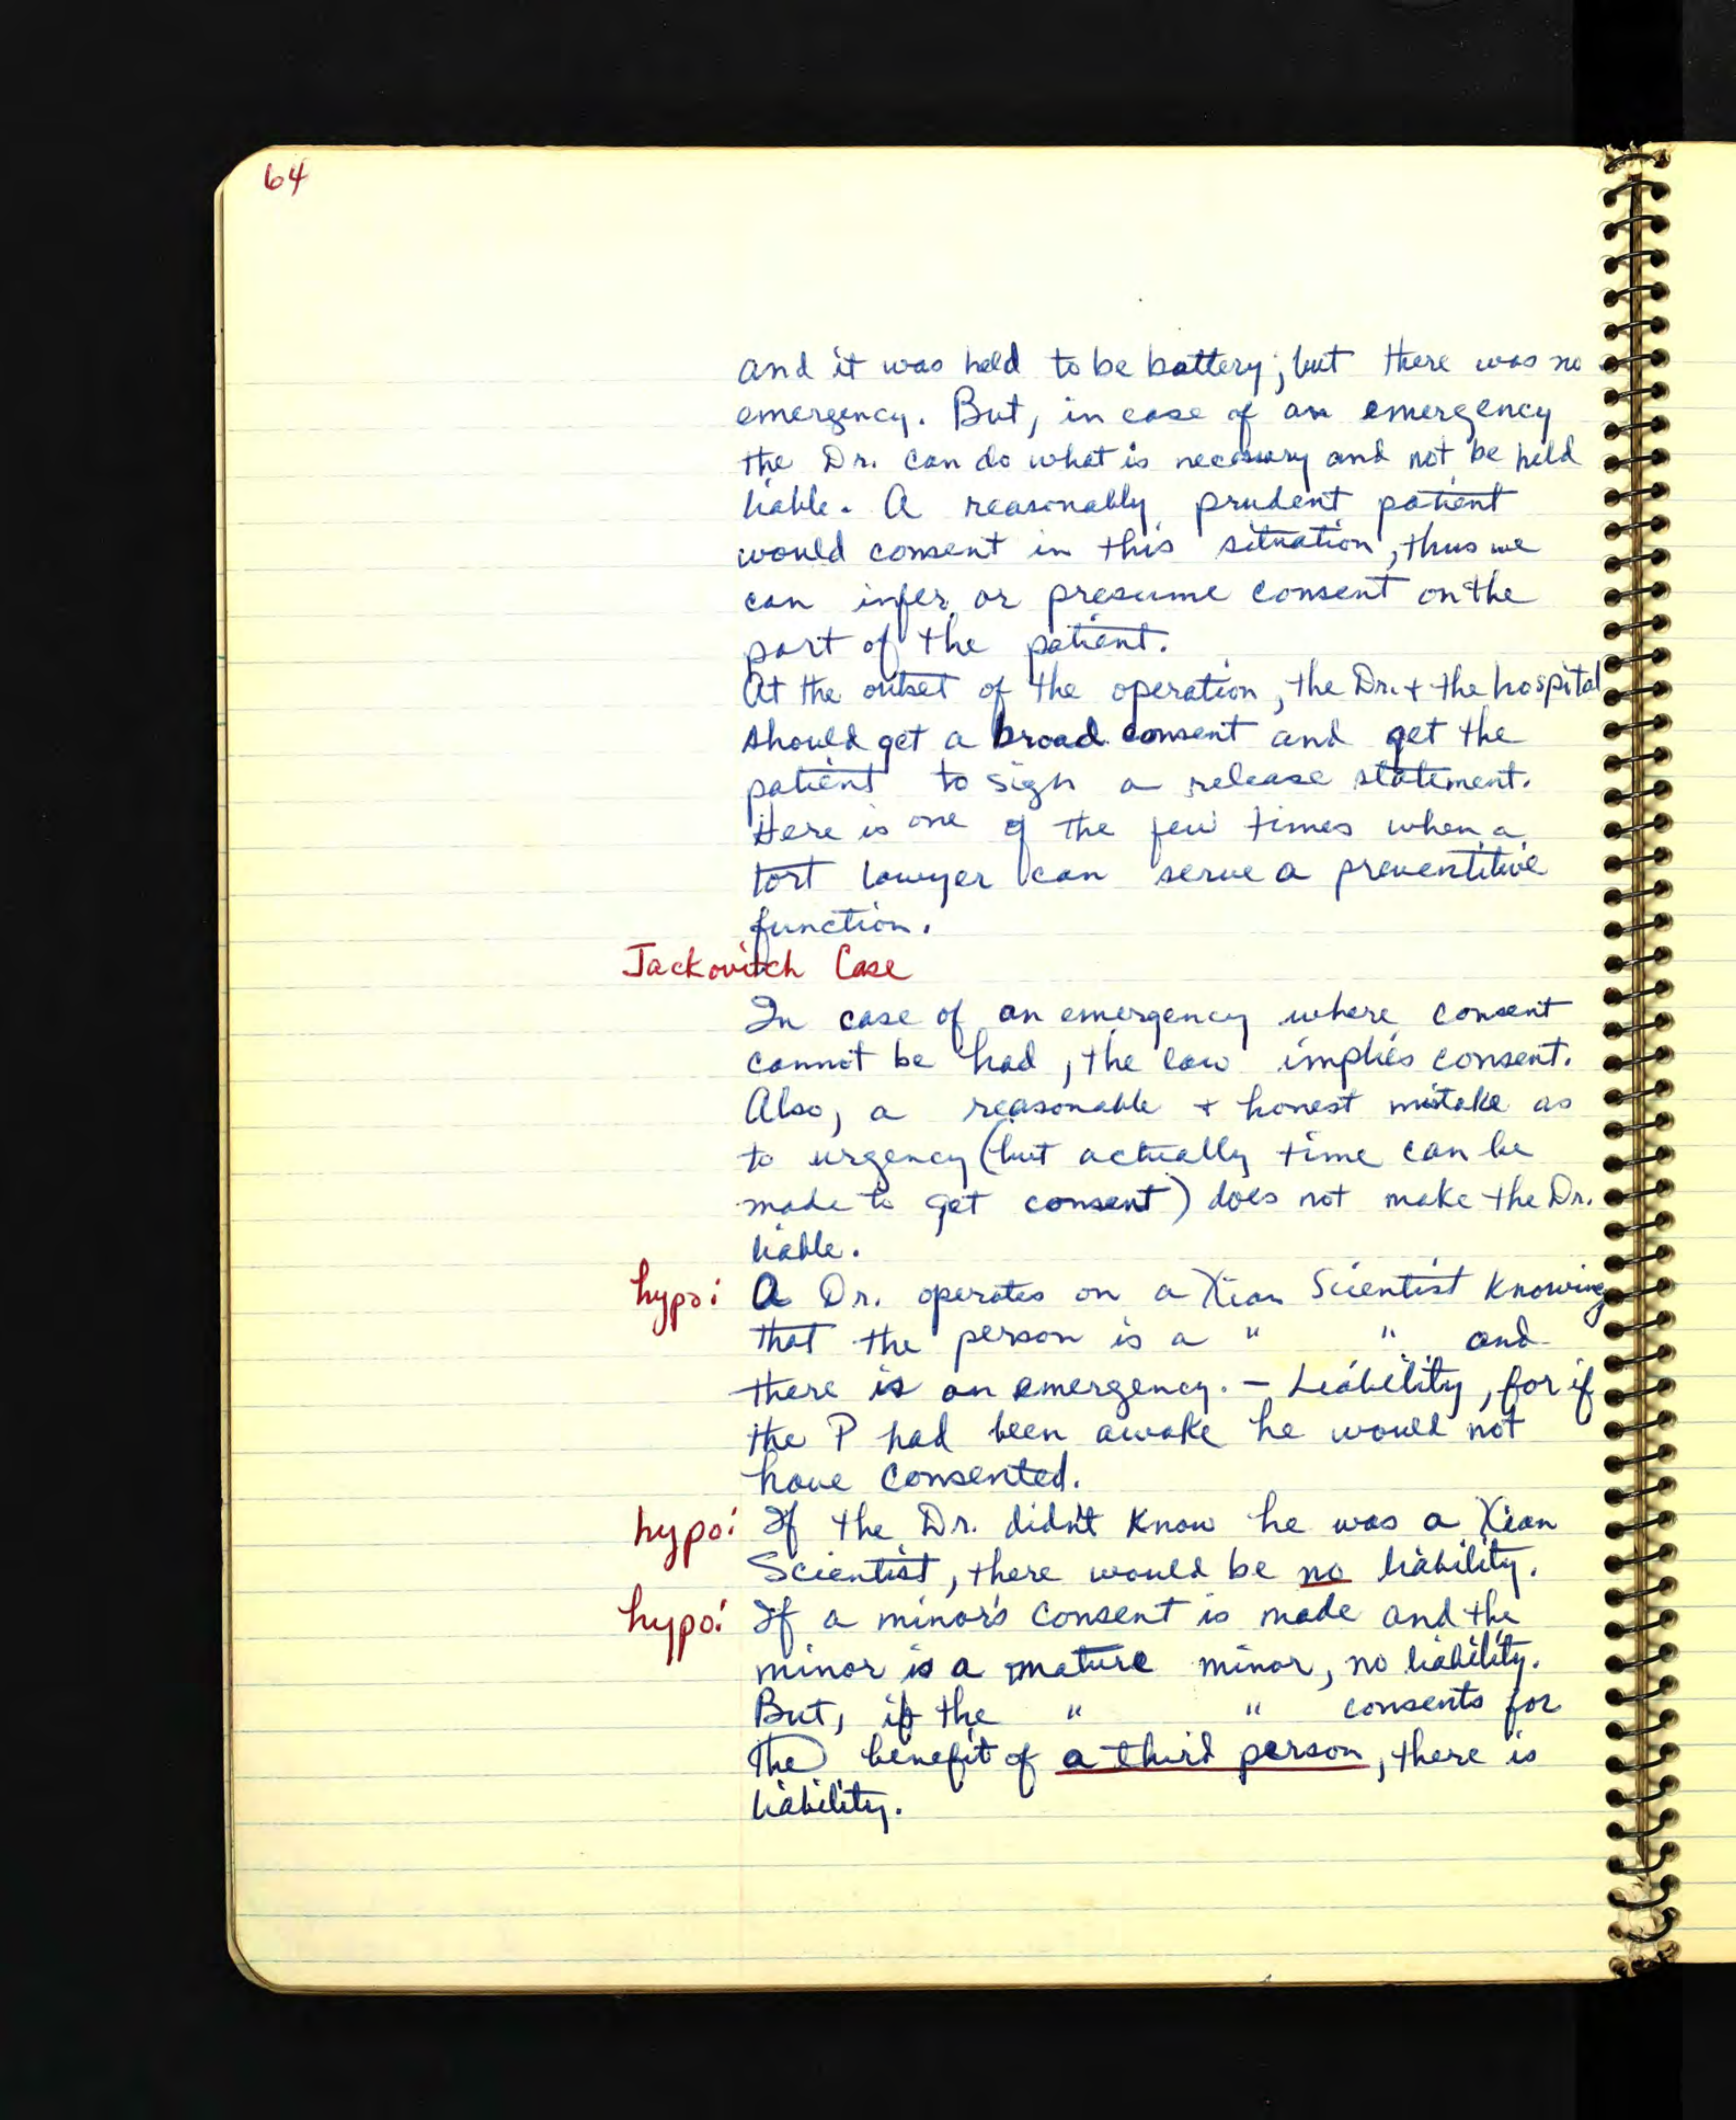 64
and it was held to be battery; but there was no
emergency. But, in case of an emergency
the Dr. can do what is necessary and not be held
liable. A reasonably prudent patient
would consent in this situation, thus we
can infer or presume consent on the
part of the patient.
At the outset of the operation, the Dr. + the hospital
should get a broad consent and get the
patient to sign a release statement.
Here is one of the few times when a
tort lawyer can serve a preventitive
function.
Jackovitch Case
In case of an emergency where consent
cannot be had, the law implies consent.
Also, a reasonable + honest mistake as
to urgency (but actually time can be
made to get consent) does not make the Dr.
liable.
hypo: A Dr. operates on a Xian Scientist knowing
that the person is a " " and
there is an emergency. - Liability, for if
the P had been awake he would not
have consented.
hypo: If the Dr. didn't know he was a Xian
Scientist, there would be no liability.
hypo: If a minor's consent is made and the
minor is a mature minor, no liability.
But, if the " " consents for
the benefit of a third person, there is
liability.